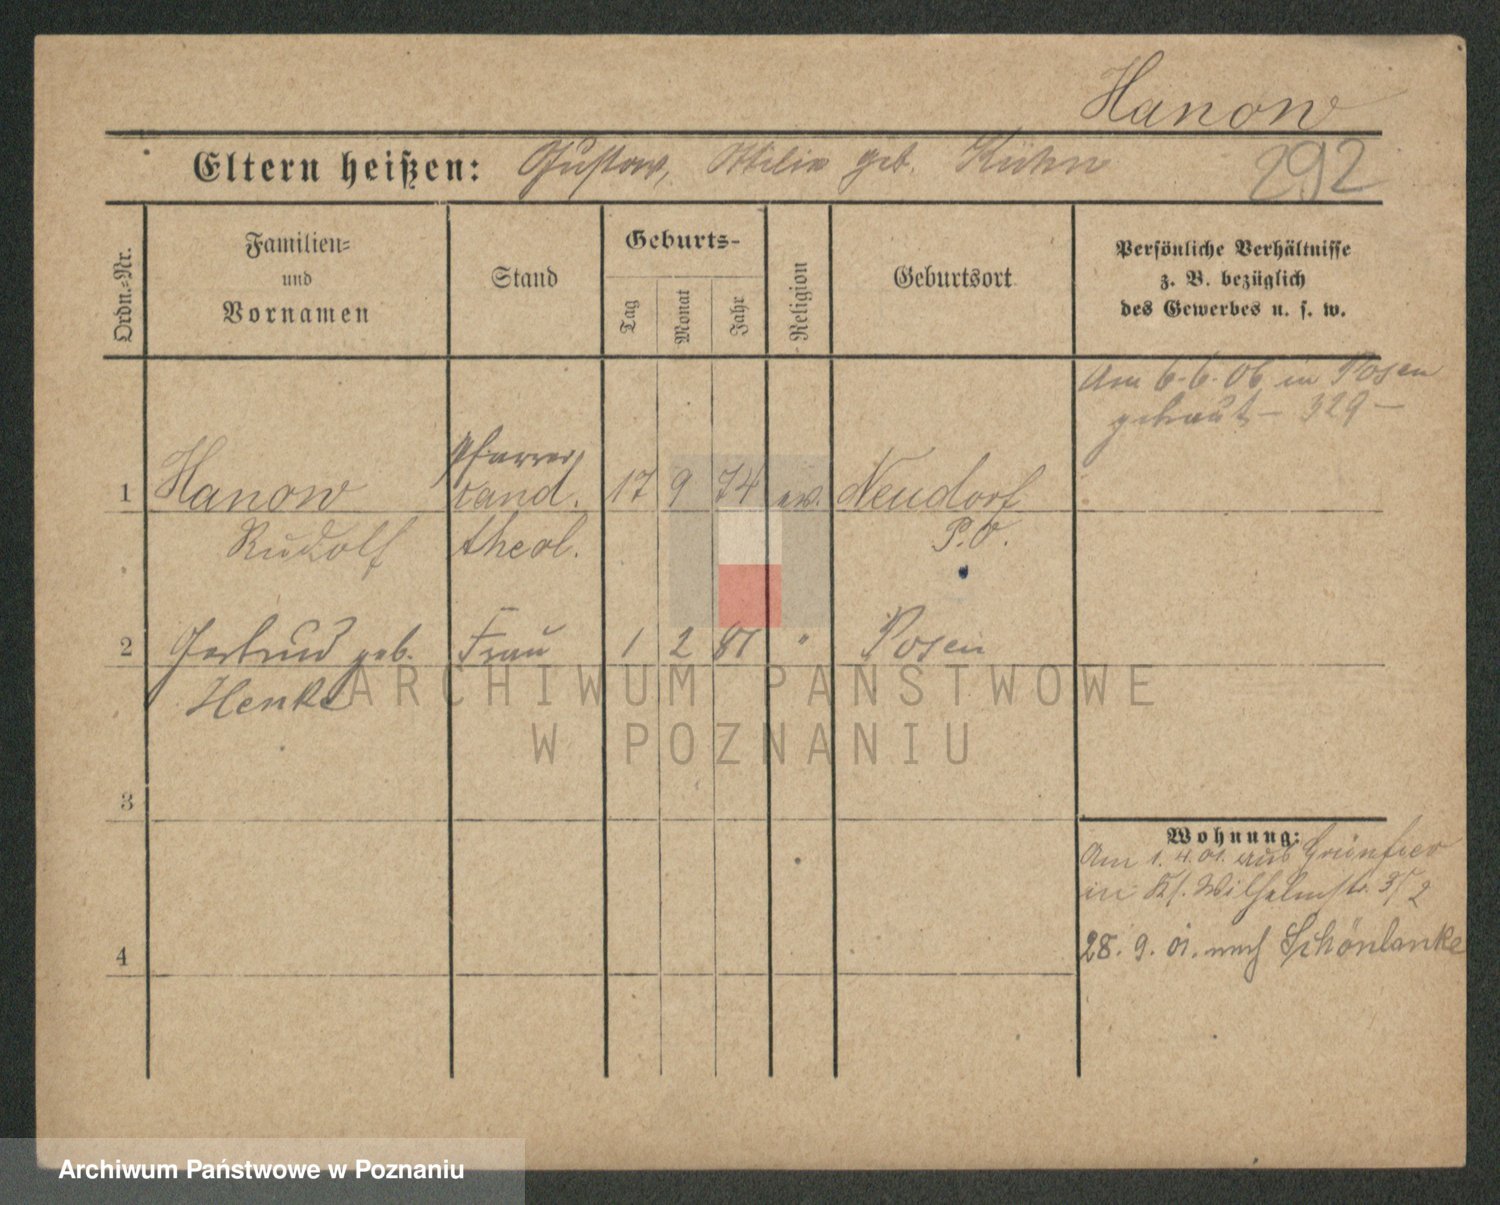 Hanow
Eltern heißen: Gustav, Ottilie geb. Kühn
292
Ordn.-Nr.
Familien-
und
Vornamen
Stand
Geburts-
Tag
Monat
Jahr
Religion
Geburtsort
Persönliche Verhältnisse
z. B. bezüglich
des Gewerbes u. s. w.
Am 6.6.06 in Posen
getraut – 329 –
Pfarrer
1 Hanow cand. 17 9 74 ev. Neudorf
Rudolf theol. P.O.
2 Gertrud geb. Frau 1 2 81 " Posen
Henke
ARCHIWUM PAŃSTWOWE
W POZNANIU
3
Wohnung:
Am 1.4.01. aus
in Kl. Wilhelmstr. 2
28. 9. 01. nach Schönlanke
4
Archiwum Państwowe w Poznaniu